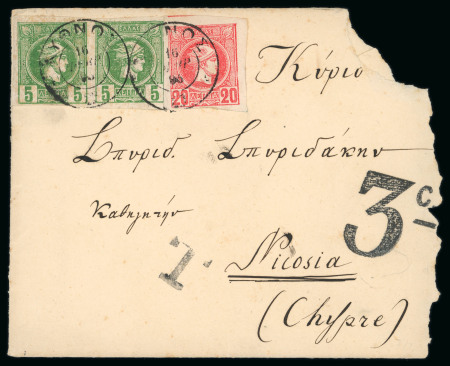 5 5 5 5 20 20
Κύριο
Σπυρίδ. Σπυριδάκην
Καθηγητήν
3 c.
T.
Nicosia
(Chypre)